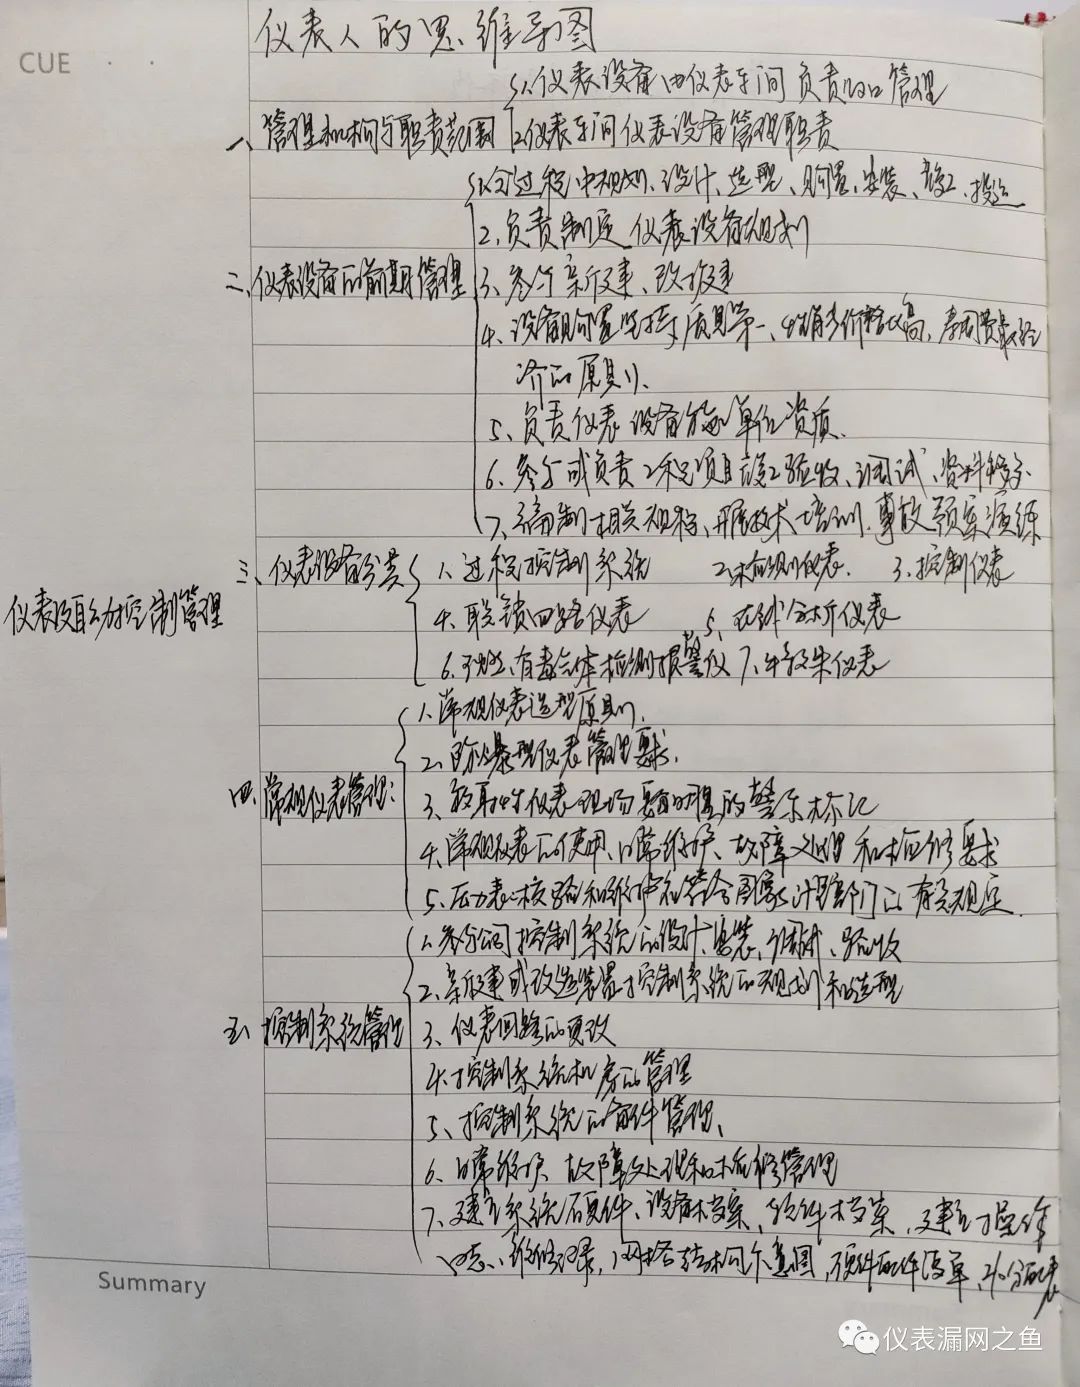 仪表人的思维导图
CUE
1、仪表设备由仪表车间负责归口管理
一、管理机构与职责范围
2、仪表车间仪表设备管理职责
1、全过程中规划、设计、选型、购置、安装、施工、投运
2、负责制定仪表设备规划
二、仪表设备的前期管理
3、参与新改建、改扩建
4、设备购置坚持质量第一、性能价格比高、寿周费最经
济的原则、
5、负责仪表设备施工单位资质、
6、参与或负责工程项目施工验收、调试、资料移交
7、编制相关规程、开展技术培训、事故预案演练
三、仪表设备分类
1、过程控制系统
2、检测仪表、
3、控制仪表
仪表及自动控制管理
4、联锁回路仪表
5、在线分析仪表
6、可燃、有毒气体检测报警仪
7、特殊仪表
1、常规仪表选型原则、
2、防爆型仪表管理要求、
四、常规仪表管理:
3、放射性仪表现场要有明显的警示标记
4、常规仪表的使用、日常维护、故障处理和检修要求
5、压力表校验和维护必须符合国家计量部门的有关规定、
1、参与公司控制系统的设计、安装、调试、验收
2、新改建或改造装置控制系统的规划和选型
五、控制系统管理
3、仪表回路的更改
4、控制系统机房的管理
5、控制系统的备件管理、
6、日常维护、故障处理和检修管理
7、建立系统硬件、设备档案、软件档案、建立操作
日志、维修记录、网络结构示意图、硬件配件清单、I/O分配表
Summary
仪表漏网之鱼